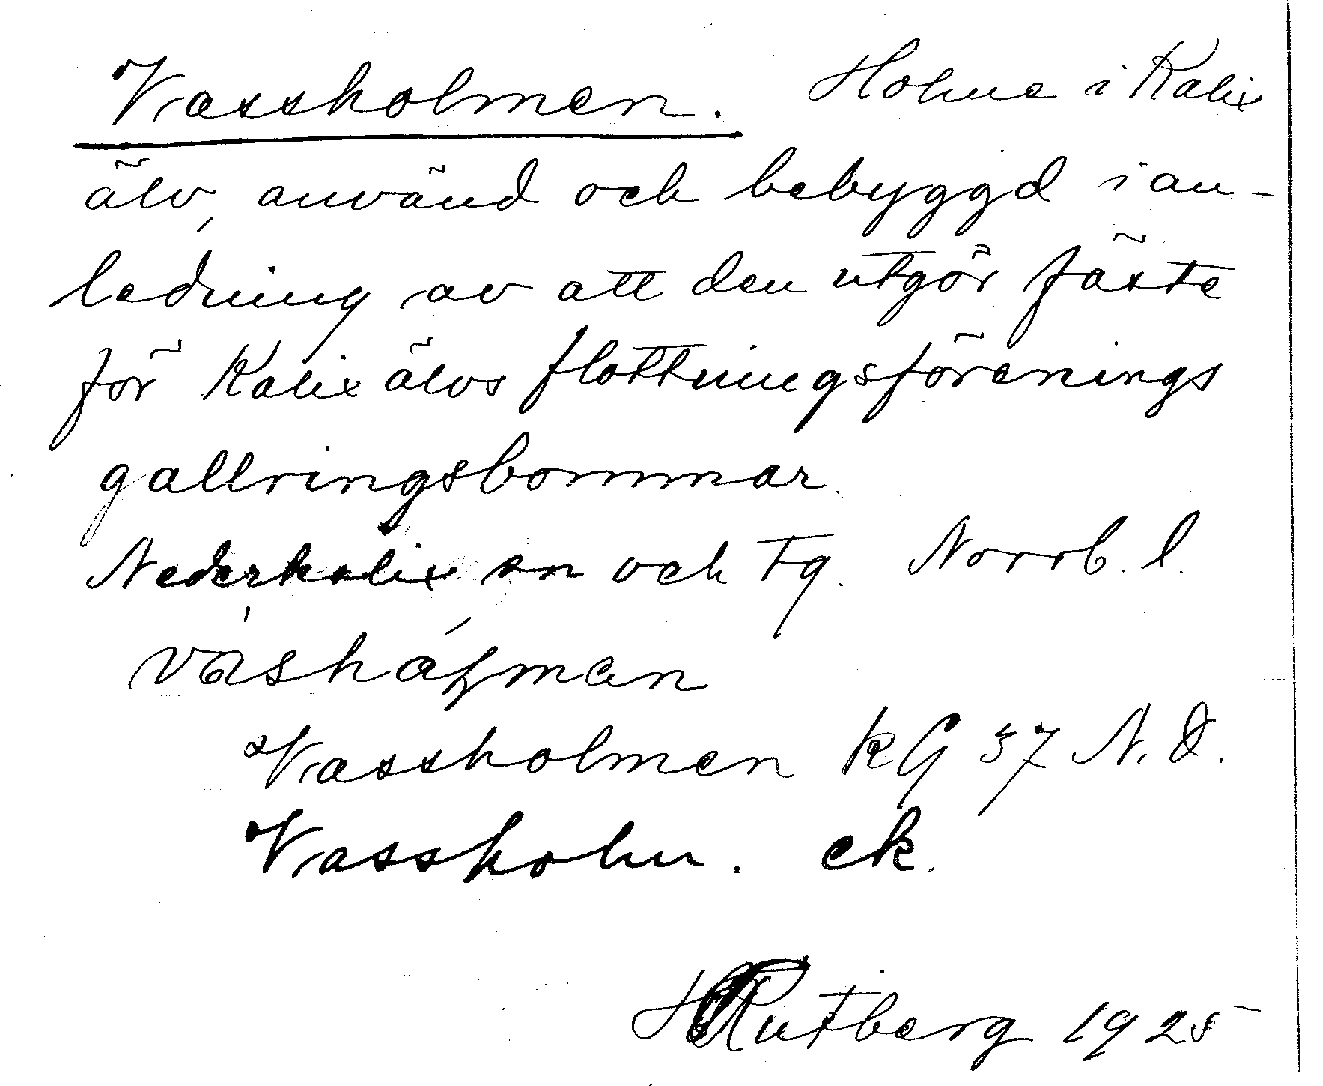 Vassholmen. Holme i Kalix
älv, använd och bebyggd i an-
ledning av att den utgör fäste
för Kalix älvs flottningsförenings
gallringsbommar.
Nederkalix sn och tg. Norrb. l.
Vassholmen KG 37 N.D.
Vassholm. ek.
H Rutberg 1925